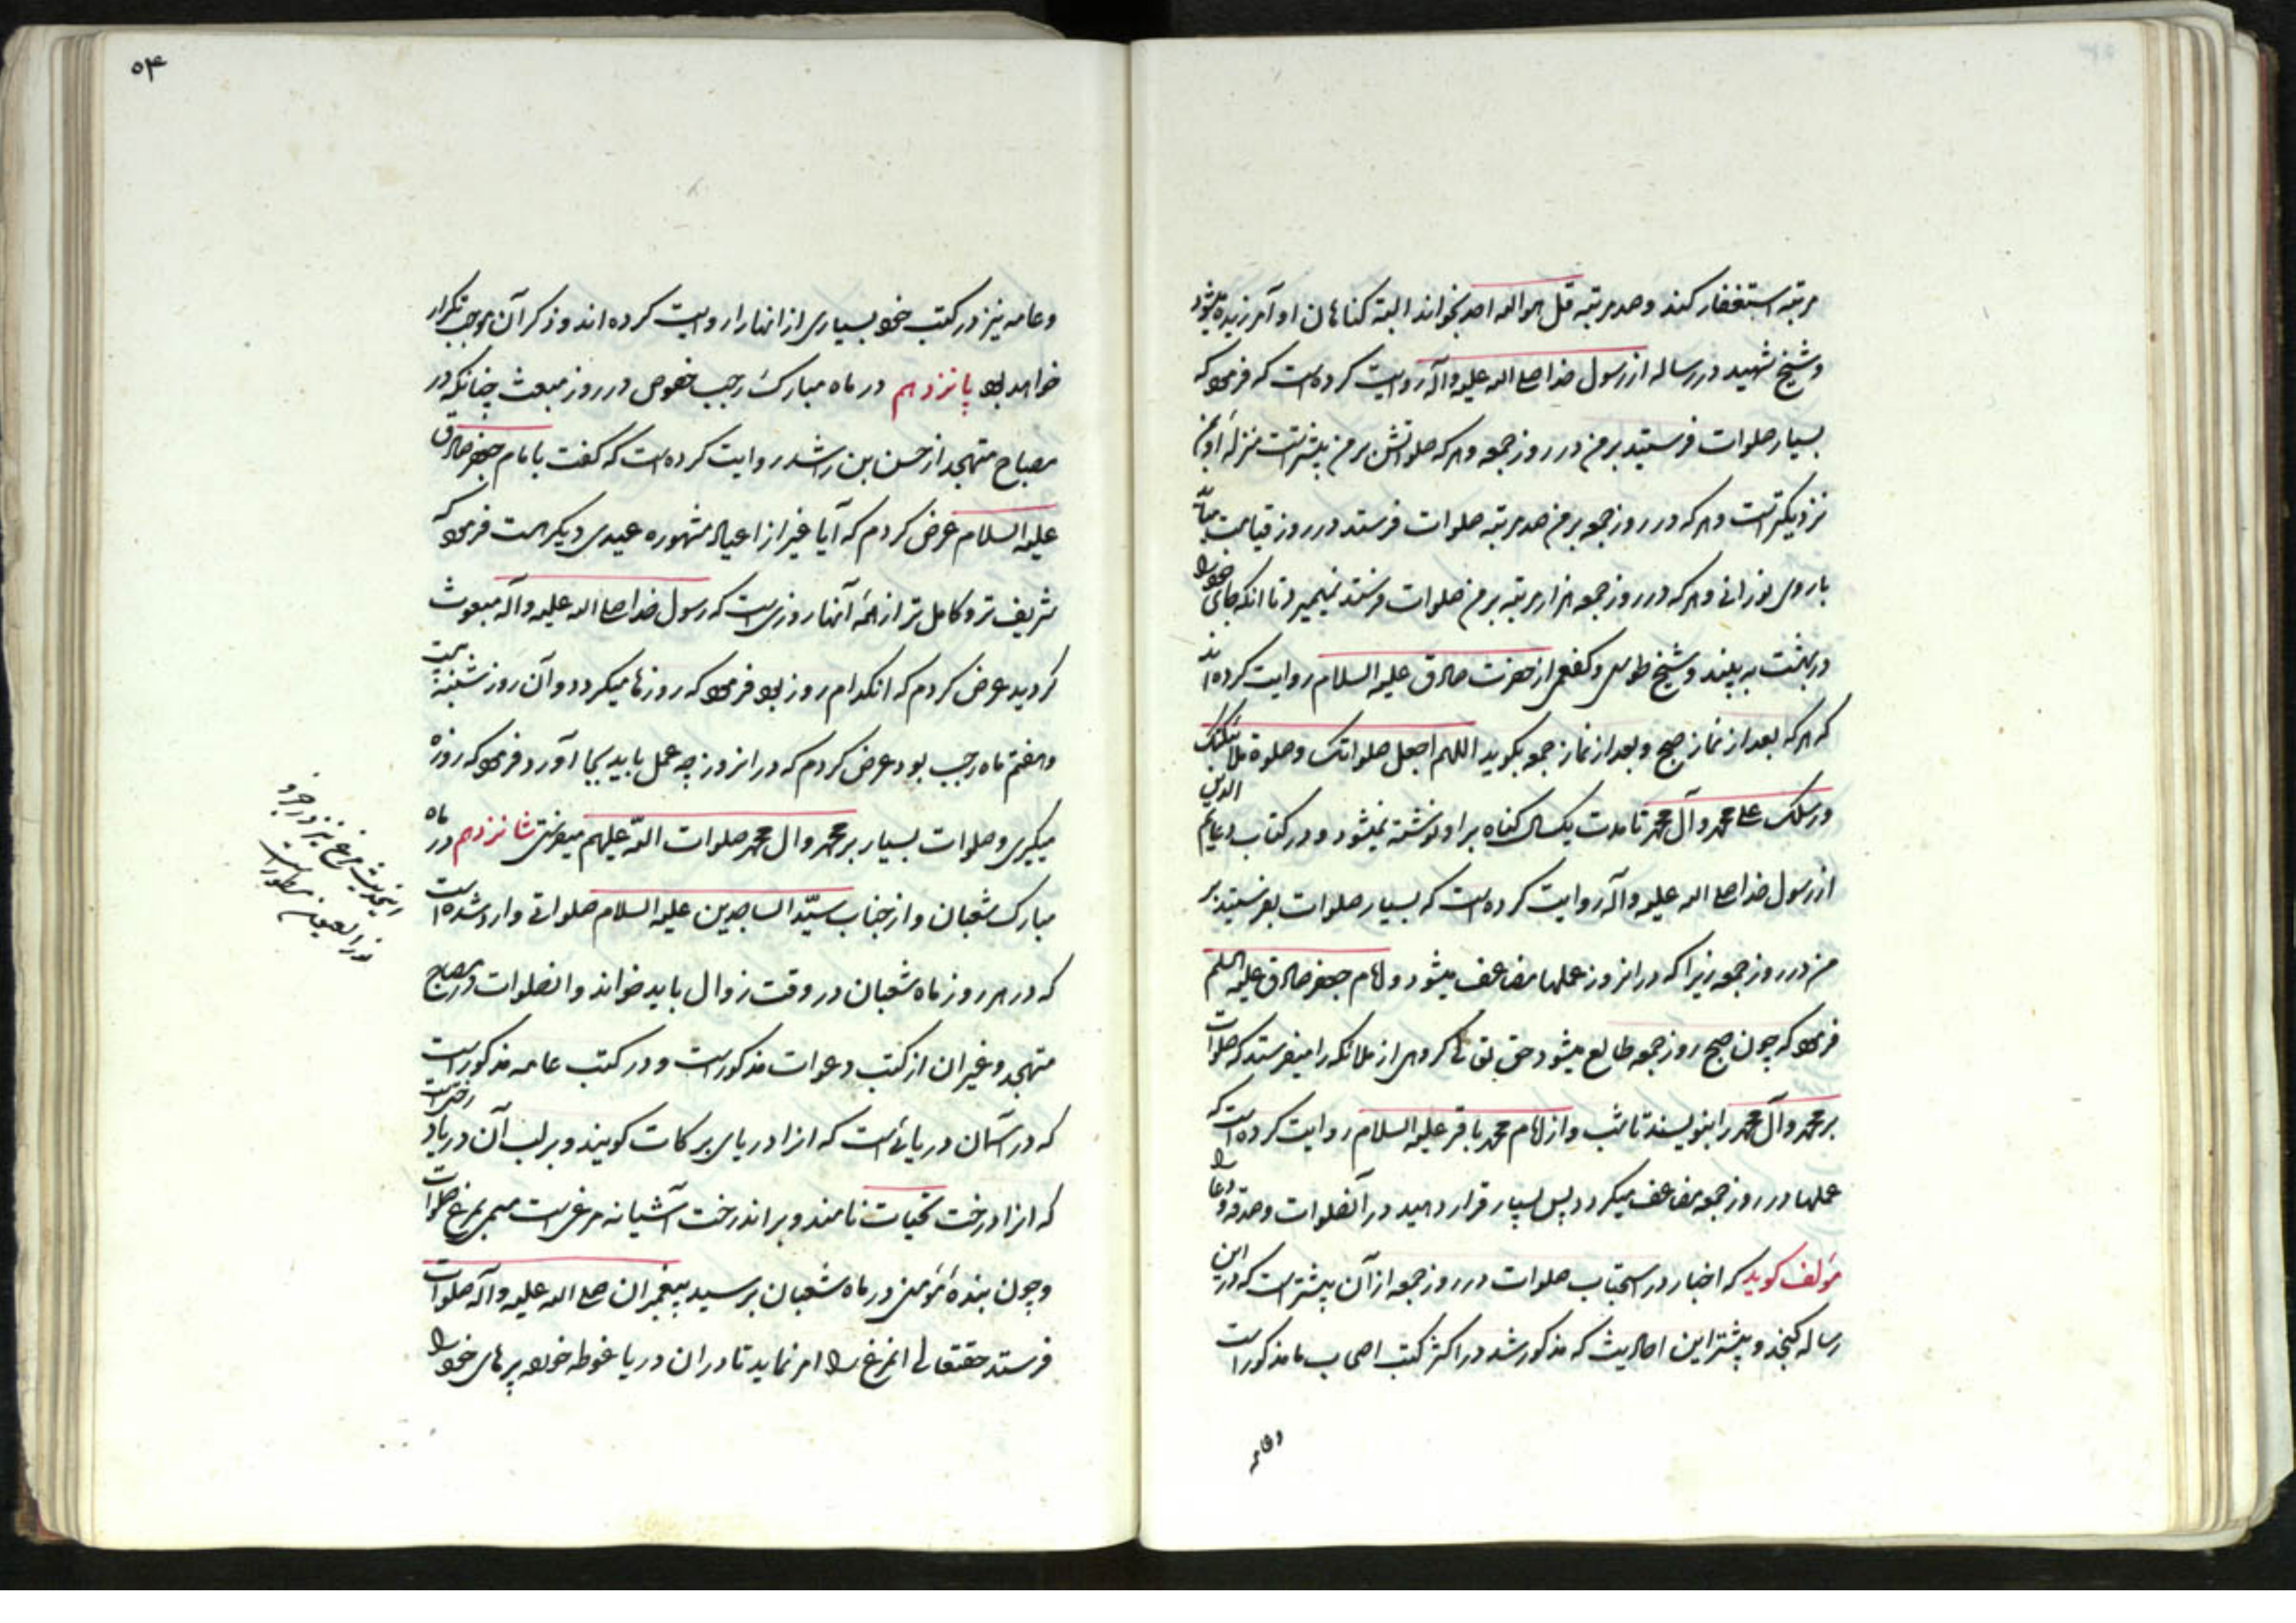 مرتبه استغفار کند و صد مرتبه قل هو الله احد بخواند البته کناهان او آمرزیده میشود
و شیخ شهید در رساله از رسول خدا صلی الله علیه و آله روایت کرده است که فرمود که
بسیار صلوات فرستید بر من در روز جمعه و هر که صلواتش بر من بیشتر است منزله او بمن
نزدیکتر است و هر که در روز جمعه بر من صد مرتبه صلوات فرستد در روز قیامت بیاید
با روی نورانی و هر که در روز جمعه هزار مرتبه بر من صلوات فرستد نمیمیرد تا آنکه جای خود را
در بهشت به بیند و شیخ طوسی و کفعمی از حضرت صادق علیه السلام روایت کرده اند
که هر که بعد از نماز صبح و بعد از نماز جمعه بکوید اللهم اجعل صلواتک و صلوة ملائکتک
و رسلک علی محمد و آل محمد تا مدت یکسال کناه بر او نوشته نمیشود و در کتاب دعایم الدین
از رسول خدا صلی الله علیه و آله روایت کرده است که بسیار صلوات بفرستید بر
من در روز جمعه زیرا که در انروز عملها مضاعف میشود و امام جعفر صادق علیه السلم
فرمود که چون صبح روز جمعه طالع میشود حق تعالی کروهی از ملائکه را میفرستد که صلوات
بر محمد و آل محمد را بنویسند تا شب و از امام محمد باقر علیه السلام روایت کرده است که
عملها در روز جمعه مضاعف میکردد پس بسیار قرار دهید در آنصلوات و صدقه و دعا را
مؤلف کوید که اخبار در استحباب صلوات در روز جمعه از آن بیشتر است که در این
رساله کنجد و بیشتر این احادیث که مذکور شد در اکثر کتب اصحاب ما مذکور است
و عامه
۵۴
و عامه نیز در کتب خود بسیاری از انها را روایت کرده اند و ذکر آن موجب تکرار
خواهد بود پانزدهم در ماه مبارک رجب خصوص در روز مبعث چنانکه در
مصباح متهجد از حسن بن راشد روایت کرده است که کفت با امام جعفر صادق
علیه السلام عرض کردم که آیا غیر از اعیاد مشهوره عیدی دیکر هست فرمود که
شریف تر و کامل تر از همه آنها روزی است که رسول خدا صلی الله علیه و آله مبعوث
کردید عرض کردم که انکدام روز بود فرمود که روزها میکردد و آن روز شنبه بیست
و هفتم ماه رجب بود عرض کردم که در انروز چه عمل باید بجا آورد فرمود که روزه
میکیری و صلوات بسیار بر محمد و ال محمد صلوات الله علیهم میفرستی شانزدهم در ماه
مبارک شعبان و از جناب سید الساجدین علیه السلام صلواتی وارد شده است
که در هر روز ماه شعبان در وقت زوال باید خواند و انصلوات در مصباح
متهجد و غیر ان از کتب دعوات مذکور است و در کتب عامه مذکور است
که در آسمان دریائی است که انرا دریای برکات کویند و بر لب آن دریا درختی است
که انرا درخت تحیات نامند و بر اندرخت آشیانه مرغی است مسمی بمرغ صلوات
و چون بنده مؤمنی در ماه شعبان بر سید پیغمبران صلی الله علیه و آله صلوات
فرستد حقتعالی انمرغ را امر نماید تا در ان دریا غوطه خورد و پرهای خود را
اینحدیث مرغ نیز در جزو